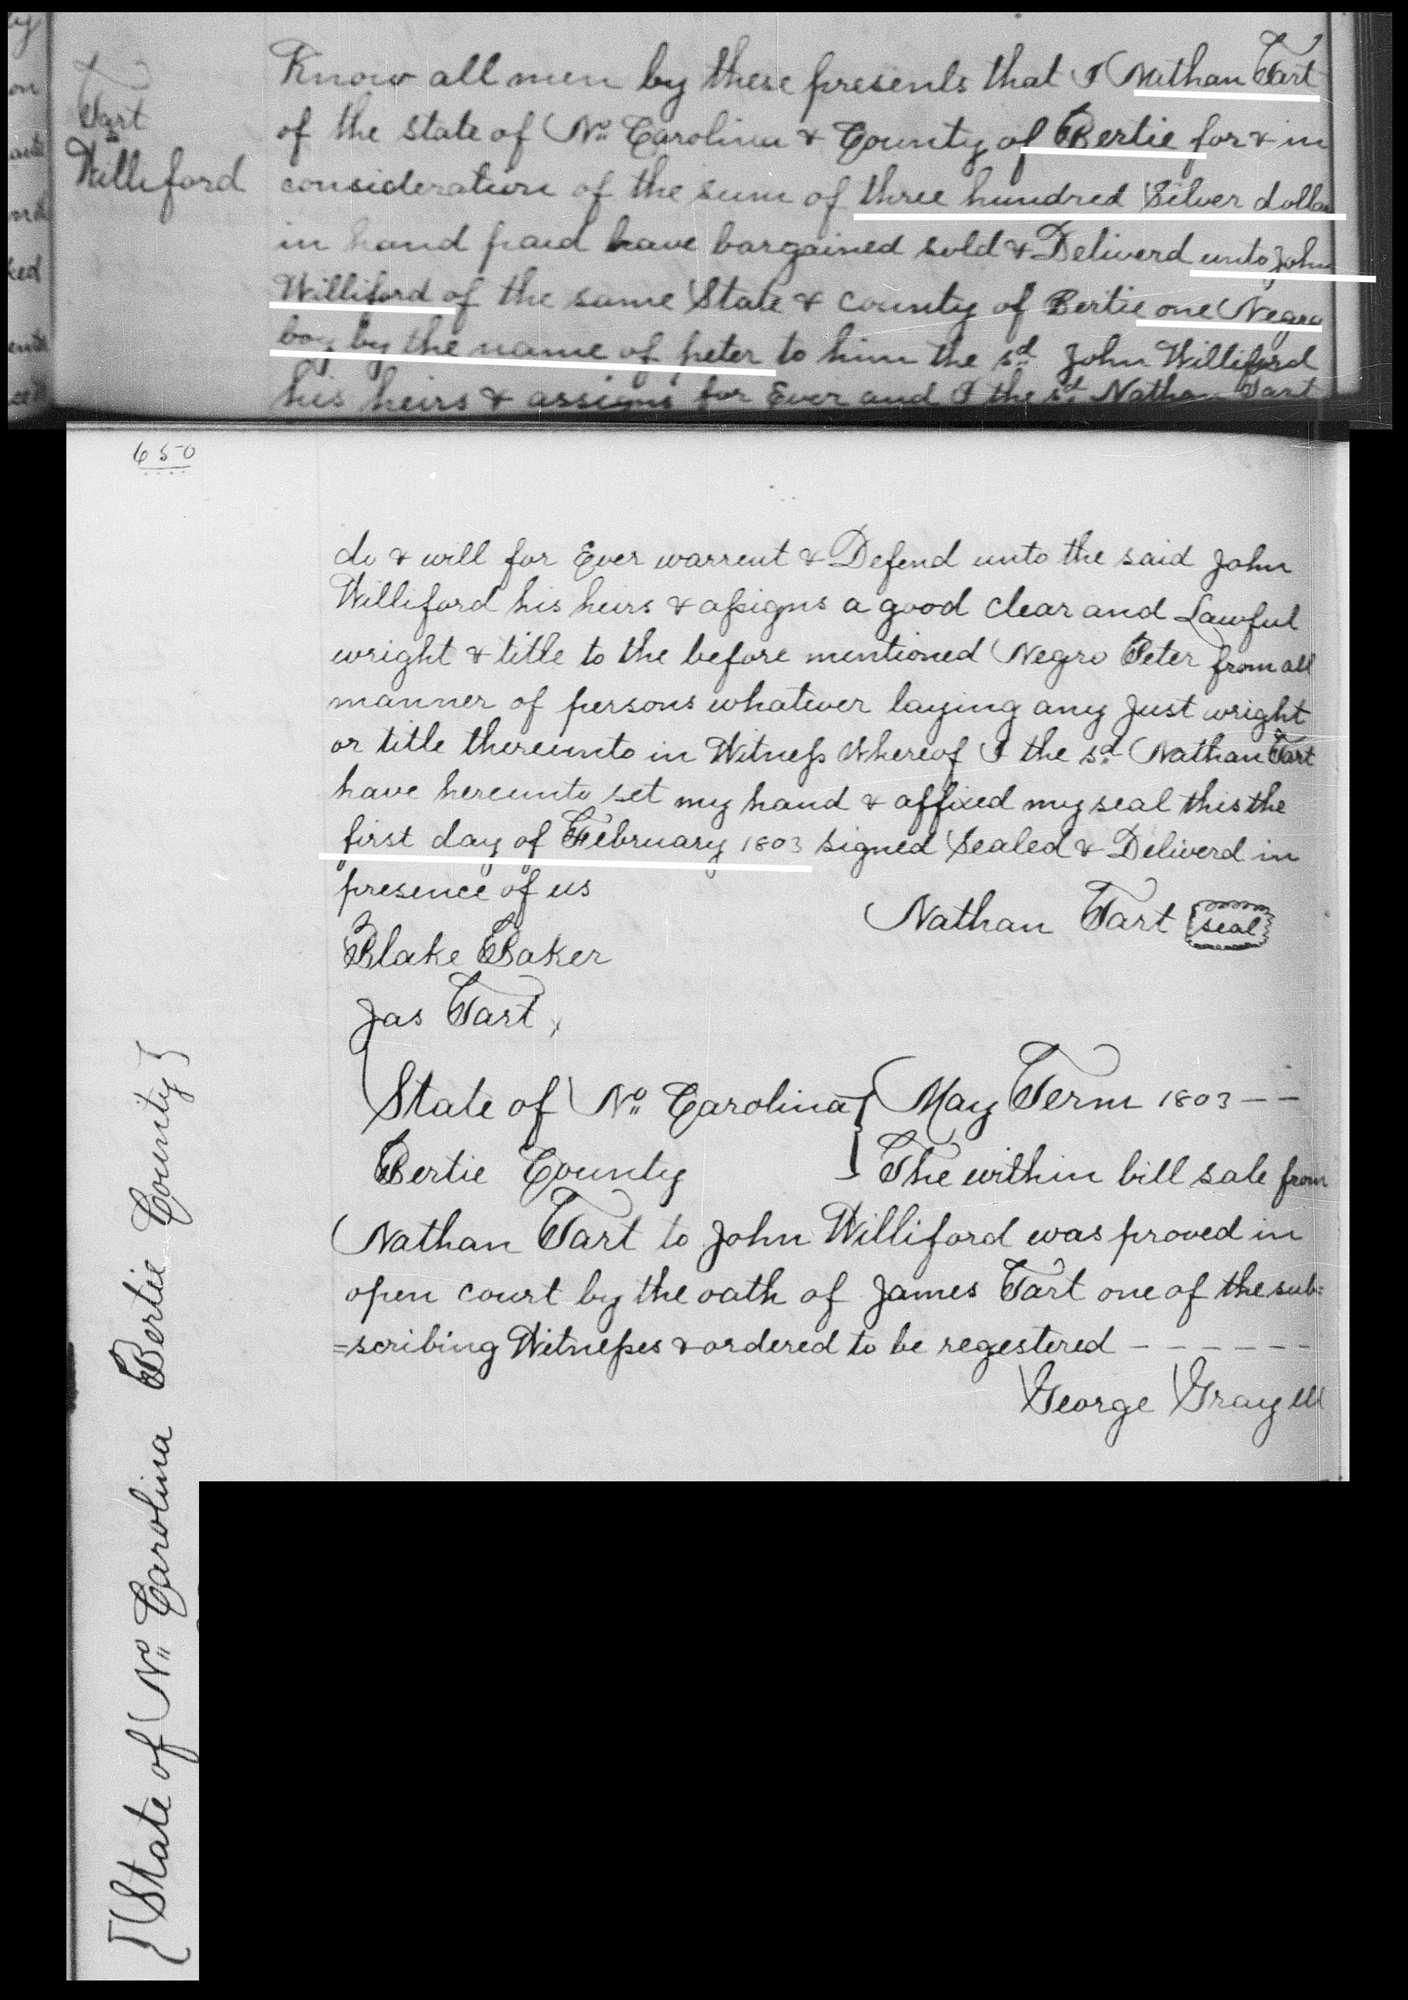 T
Tart
to
Williford
Know all men by these presents that I Nathan Tart
of the state of No. Carolina & County of Bertie for & in
consideration of the sum of three hundred Silver dollar
in hand paid have bargained sold & Deliverd unto John
Williford of the same State & county of Bertie one Negro
boy by the name of peter to him the sd. John Williford
his heirs & assigns for Ever and I the sd. Nathan Tart
650
do & will for Ever warrent & Defend unto the said John
Williford his heirs & assigns a good clear and Lawful
wright & title to the before mentioned Negro Peter from all
manner of persons whatever laying any Just wright
or title thereunto in Witness Whereof I the sd. Nathan Tart
have hereunto set my hand & affixed my seal this the
first day of February 1803 signed Sealed & Deliverd in
presence of us
Nathan Tart seal
Blake Baker
Jas Tart
State of No. Carolina } May Term 1803 --
Bertie County } The within bill sale from
Nathan Tart to John Williford was proved in
open court by the oath of James Tart one of the sub=
=scribing Witnesses & ordered to be regestered ------
George Gray
[State of No. Carolina Bertie County}